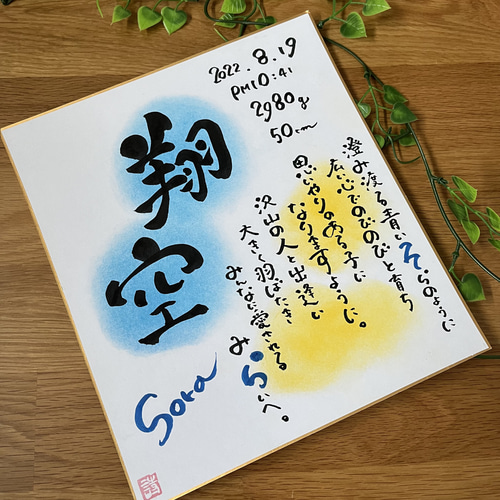 2022.8.19
PM10:41
2980g
50cm
翔空
Sora
澄み渡る青いそらのように
広い心でのびのびと育ち
思いやりのある子に
なりますように。
沢山の人と出逢い
大きく羽ばたき
みんなに愛させる
みらいへ。